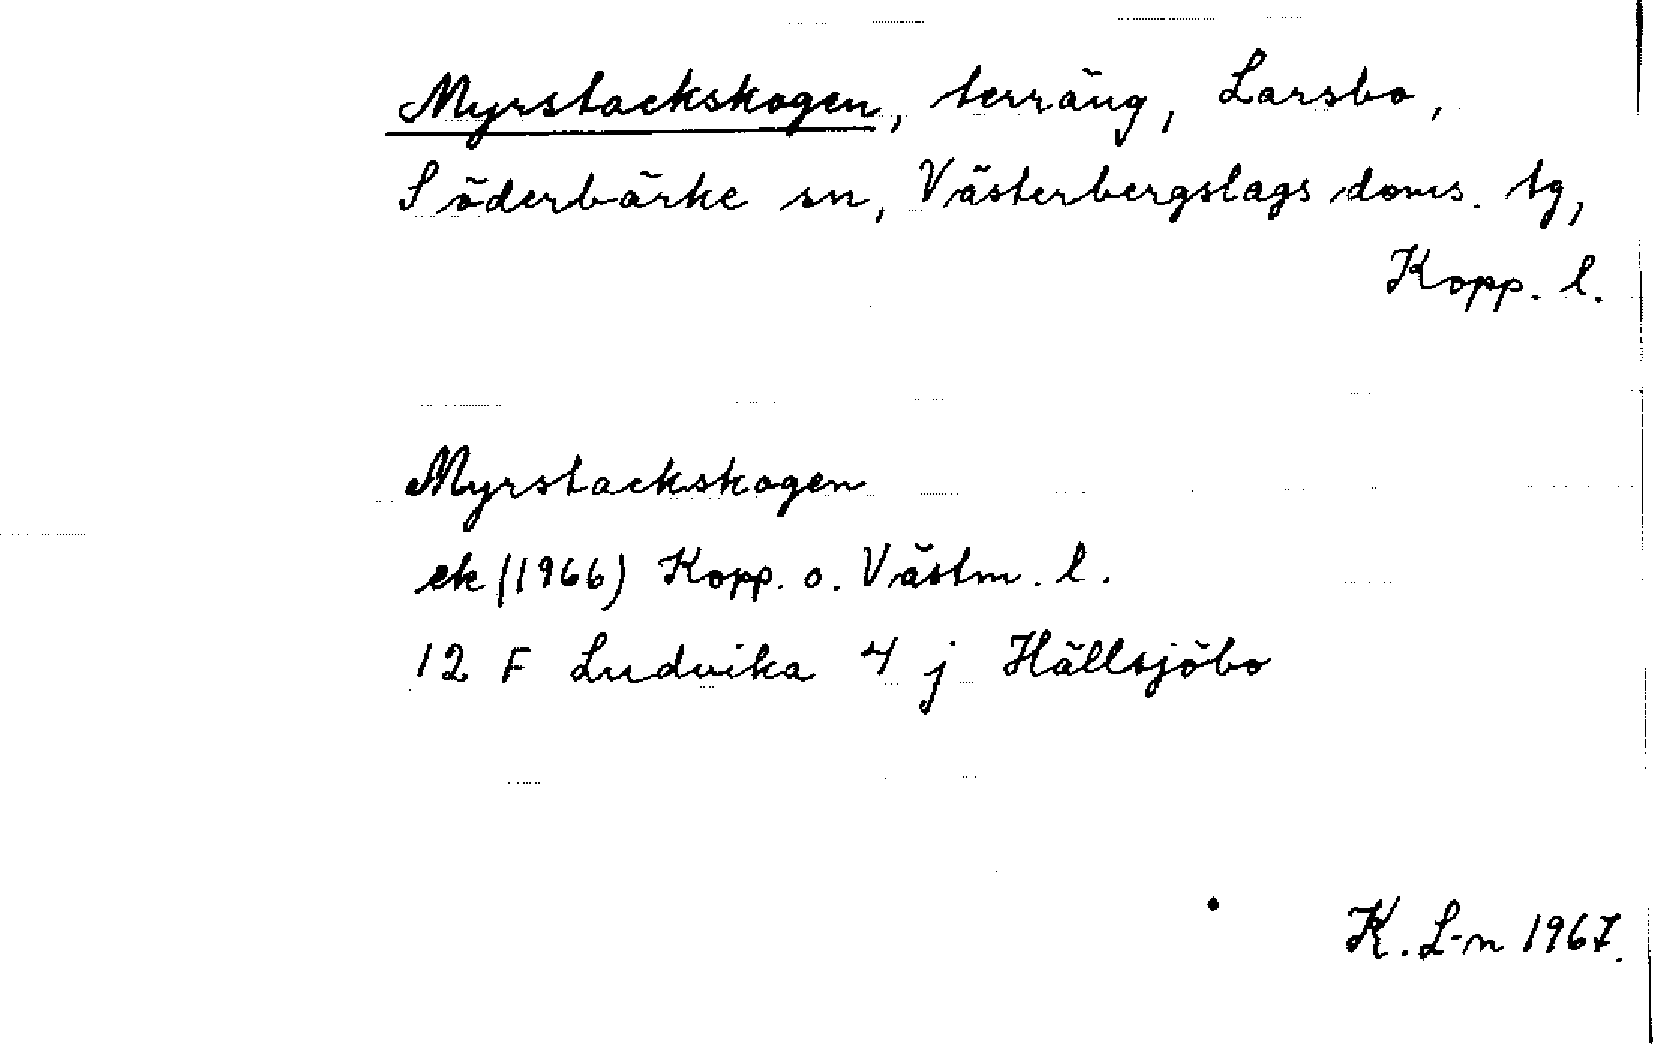 Myrstackskogen, terräng, Larsbo,
Söderbärke sn, Västerbergslags doms. tg,
Kopp. l.
Myrstackskogen
ek (1966) Kopp. o. Västm. l.
12 F Ludvika 4 j Hällsjöbo
K. L-n 1967.